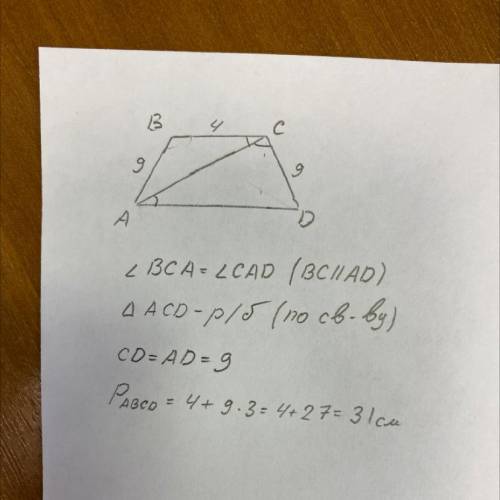 B 4 C
9 9
A D
∠BCA=∠CAD (BC||AD)
△ACD-р/б (по св-ву)
CD=AD=9
P_ABCD = 4+9·3=4+27=31см